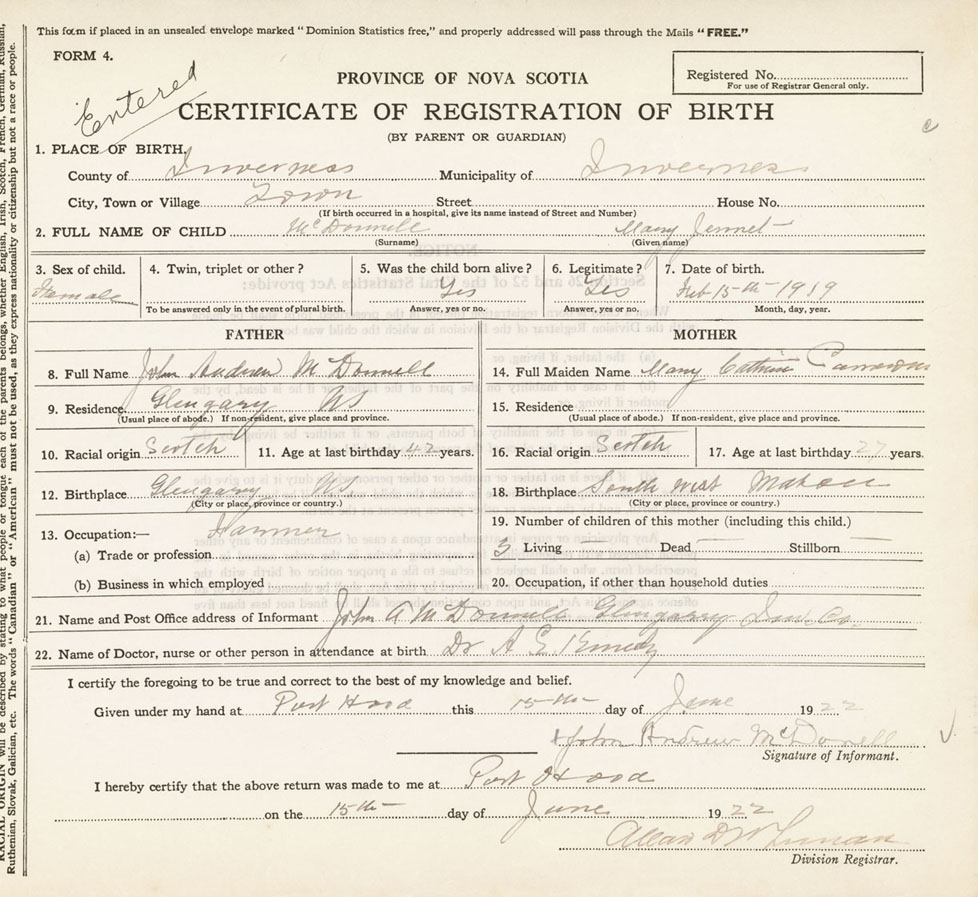 This form if placed in an unsealed envelope marked "Dominion Statistics free," and properly addressed will pass through the Mails "FREE."
FORM 4.
Registered No.
For use of Registrar General only.
Entered
PROVINCE OF NOVA SCOTIA
CERTIFICATE OF REGISTRATION OF BIRTH
(BY PARENT OR GUARDIAN)
1. PLACE OF BIRTH.
County of Inverness Municipality of Inverness
City, Town or Village Town Street House No.
(If birth occurred in a hospital, give its name instead of Street and Number)
2. FULL NAME OF CHILD McDonnell Mary Jennet
(Surname) (Given name)
3. Sex of child. 4. Twin, triplet or other? 5. Was the child born alive? 6. Legitimate? 7. Date of birth.
Female Yes Yes Feb 15th 1919
To be answered only in the event of plural birth. Answer, yes or no. Answer, yes or no. Month, day, year.
FATHER MOTHER
8. Full Name John Andrew McDonnell 14. Full Maiden Name Mary
9. Residence Glengary NS 15. Residence
(Usual place of abode.) If non-resident, give place and province. (Usual place of abode.) If non-resident, give place and province.
10. Racial origin Scotch 11. Age at last birthday 42 years. 16. Racial origin Scotch 17. Age at last birthday 27 years.
12. Birthplace Glengary NS 18. Birthplace South West Mabou
(City or place, province or country.) (City or place, province or country.)
13. Occupation:— 19. Number of children of this mother (including this child.)
(a) Trade or profession 3 Living Dead Stillborn
(b) Business in which employed 20. Occupation, if other than household duties
21. Name and Post Office address of Informant John A McDonnell Glengary Inv. Co.
22. Name of Doctor, nurse or other person in attendance at birth Dr A E
I certify the foregoing to be true and correct to the best of my knowledge and belief.
Given under my hand at Port Hood this 15th day of June 1922
John Andrew McDonnell
Signature of Informant.
I hereby certify that the above return was made to me at Port Hood
on the 15th day of June 1922
Division Registrar.
RACIAL ORIGIN will be described by stating to what people or tongue each of the parents belongs, whether English, Irish, Scotch, French, German, Russian,
Ruthenian, Slovak, Galician, etc. The words "Canadian" or "American" must not be used, as they express nationality or citizenship but not a race or people.